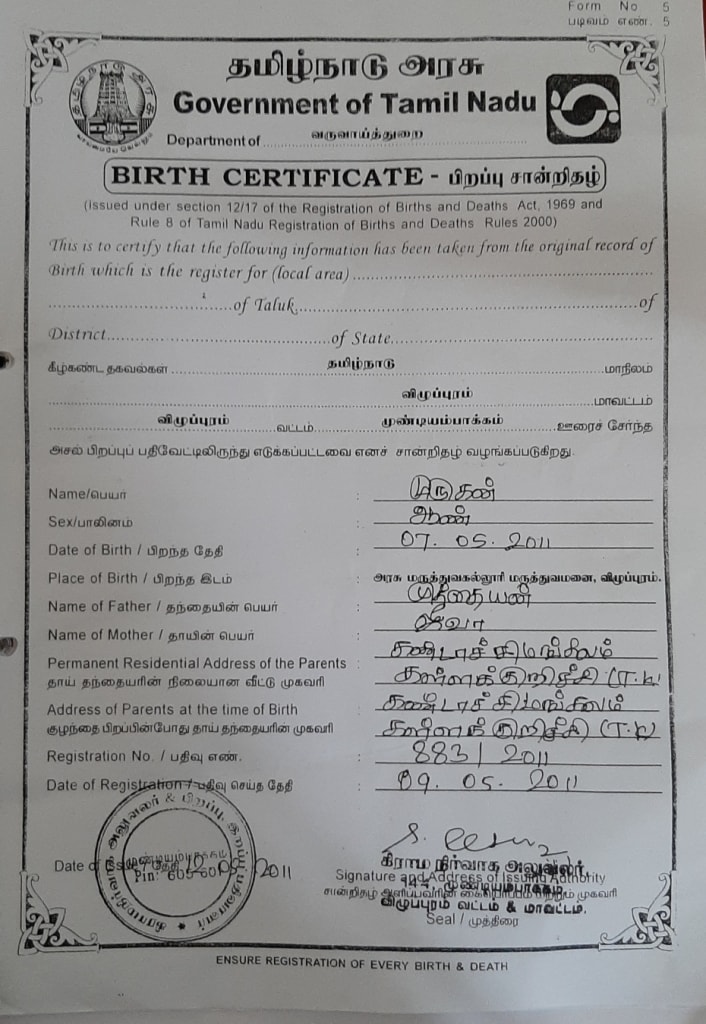 Form No 5
படிவம் எண். 5
தமிழ்நாடு அரசு
Government of Tamil Nadu
Department of வருவாய்த்துறை
BIRTH CERTIFICATE - பிறப்பு சான்றிதழ்
(Issued under section 12/17 of the Registration of Births and Deaths Act, 1969 and
Rule 8 of Tamil Nadu Registration of Births and Deaths Rules 2000)
This is to certify that the following information has been taken from the original record of
Birth which is the register for (local area)
of Taluk of
District of State
கீழ்கண்ட தகவல்கள் தமிழ்நாடு மாநிலம்
விழுப்புரம் மாவட்டம்
விழுப்புரம் வட்டம் முண்டியம்பாக்கம் ஊரைச் சேர்ந்த
அசல் பிறப்புப் பதிவேட்டிலிருந்து எடுக்கப்பட்டவை எனச் சான்றிதழ் வழங்கப்படுகிறது.
Name/பெயர் : முருகன்
Sex/பாலினம் : ஆண்
Date of Birth / பிறந்த தேதி : 07. 05. 2011
Place of Birth / பிறந்த இடம் : அரசு மருத்துவகல்லூரி மருத்துவமனை, விழுப்புரம்.
Name of Father / தந்தையின் பெயர் : முத்தையன்
Name of Mother / தாயின் பெயர் :
Permanent Residential Address of the Parents :
தாய் தந்தையரின் நிலையான வீட்டு முகவரி கள்ளக்குறிச்சி (T.k)
Address of Parents at the time of Birth :
குழந்தை பிறப்பின்போது தாய் தந்தையரின் முகவரி கள்ளக்குறிச்சி (T.k)
Registration No. / பதிவு எண். : 883 / 2011
Date of Registration / பதிவு செய்த தேதி : 09. 05. 2011
Date of 2011
கிராம நிர்வாக அலுவலர்,
Signature and Address of Issuing Authority
முண்டியம்பாக்கம்
சான்றிதழ் அளிப்பவரின் கையொப்பம் மற்றும் முகவரி
விழுப்புரம் வட்டம் & மாவட்டம்.
Seal / முத்திரை
ENSURE REGISTRATION OF EVERY BIRTH & DEATH